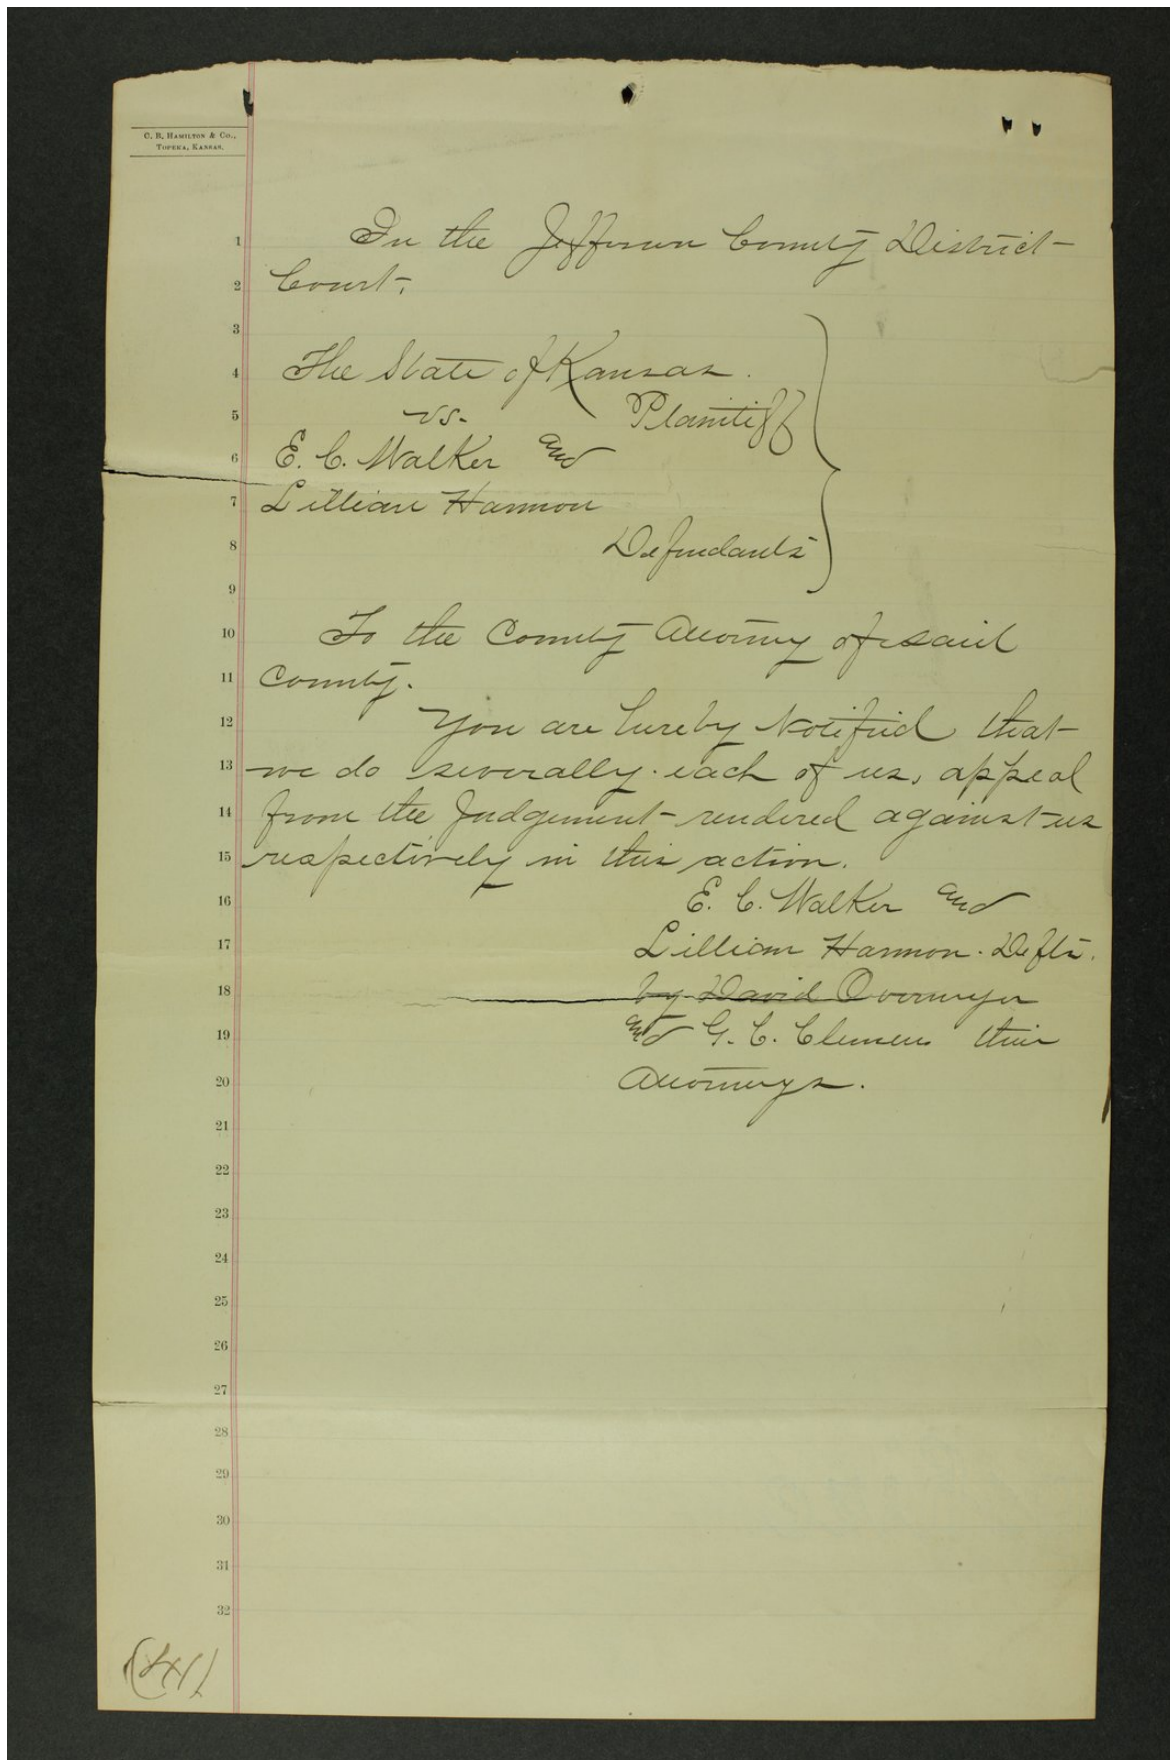 C. B. HAMILTON & CO.,
TOPEKA, KANSAS.
1 In the Jefferson County District
2 Court.
3
4 The State of Kansas.
5 vs. Plaintiff
6 E. C. Walker and
7 Lillian Harmon
8 Defendants
9
10 To the County Attorney of said
11 County.
12 You are hereby Notified that
13 we do severally. each of us, appeal
14 from the Judgement rendered against us
15 respectively in this action.
16 E. C. Walker and
17 Lillian Harmon. Defts.
18 by David Overmyer
19 and G. C. Clemens their
20 Attorneys.
21
22
23
24
25
26
27
28
29
30
31
32